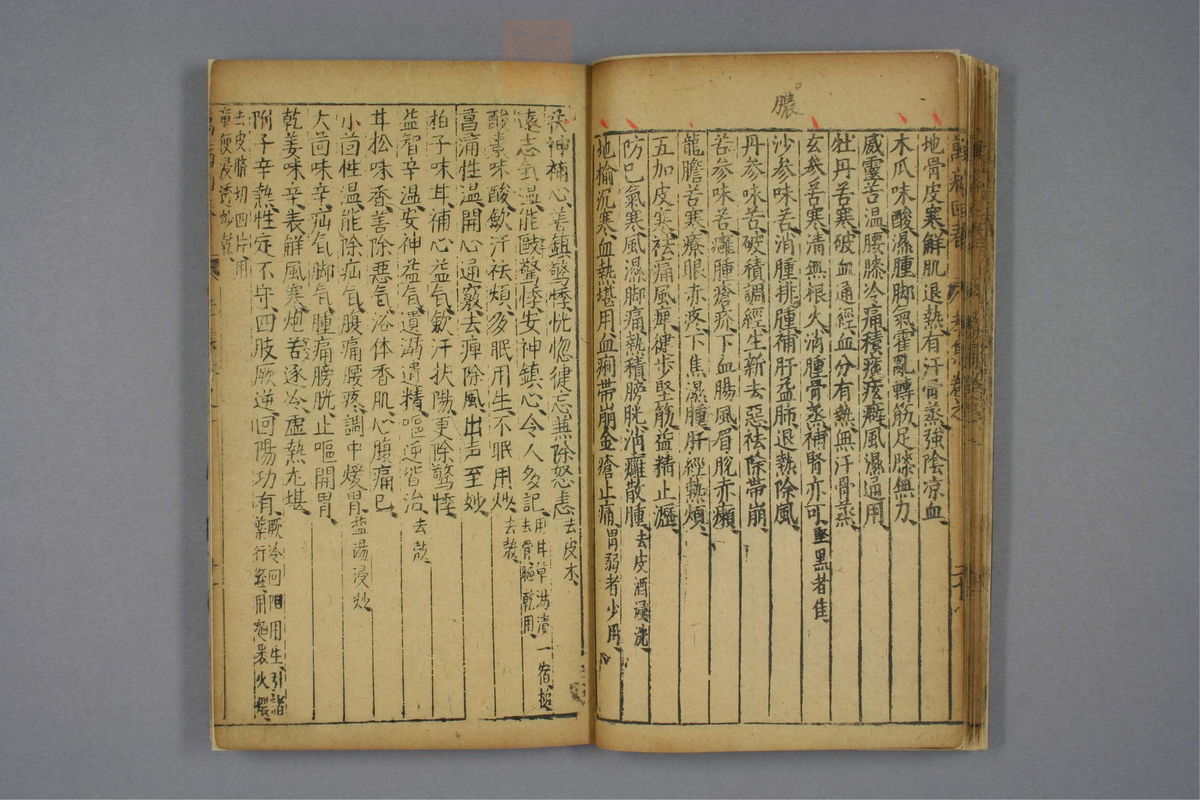 膿
地骨皮寒解肌退熱有汗骨蒸強陰凉血
木瓜味酸濕腫脚氣霍亂轉筋足膝無力
威靈苦温腰膝冷痛積痰痃癖風濕通用
牡丹苦寒破血通經血分有熱無汗骨蒸
玄參苦寒清無根火消腫骨蒸補腎亦可堅黑者佳
沙參味苦消腫排膿補肝益肺退熱除風
丹參味苦破積調經生新去惡祛除帶崩
苦參味苦癰腫瘡疥下血腸風眉脫赤癩
龍膽苦寒療眼赤疼下焦濕腫肝經熱煩
五加皮寒祛痛風痺健步堅筋益精止瀝
防己氣寒風濕脚痛熱積膀胱消癰散腫去皮酒浸洗
地榆沉寒血熱堪用血痢帶崩金瘡止痛胃弱者少用
茯神補心善鎮驚悸恍惚健忘兼除怒恚去皮木
遠志氣温能敺驚悸安神鎮心令人多記用甘草湯漬一宿
去骨晒乾用
酸棗味酸斂汗祛煩多眠用生不眠用炒去核
菖蒲性温開心通竅去痺除風出声至妙
柏子味甘補心益氣斂汗扶陽更除驚悸
益智辛温安神益氣遺溺遺精嘔逆皆治去殼
甘松味香善除惡氣浴体香肌心腹痛已
小茴性温能除疝氣腹痛腰疼調中煖胃盐湯浸炒
大茴味辛疝氣脚氣腫痛膀胱止嘔開胃
乾姜味辛表解風寒炮苦逐冷虚熱尤堪
附子辛熱性走不守四肢厥逆回陽功有厥冷回陽用生引諸
藥行經用麵裹火煨
去皮臍切四片用
童便浸透